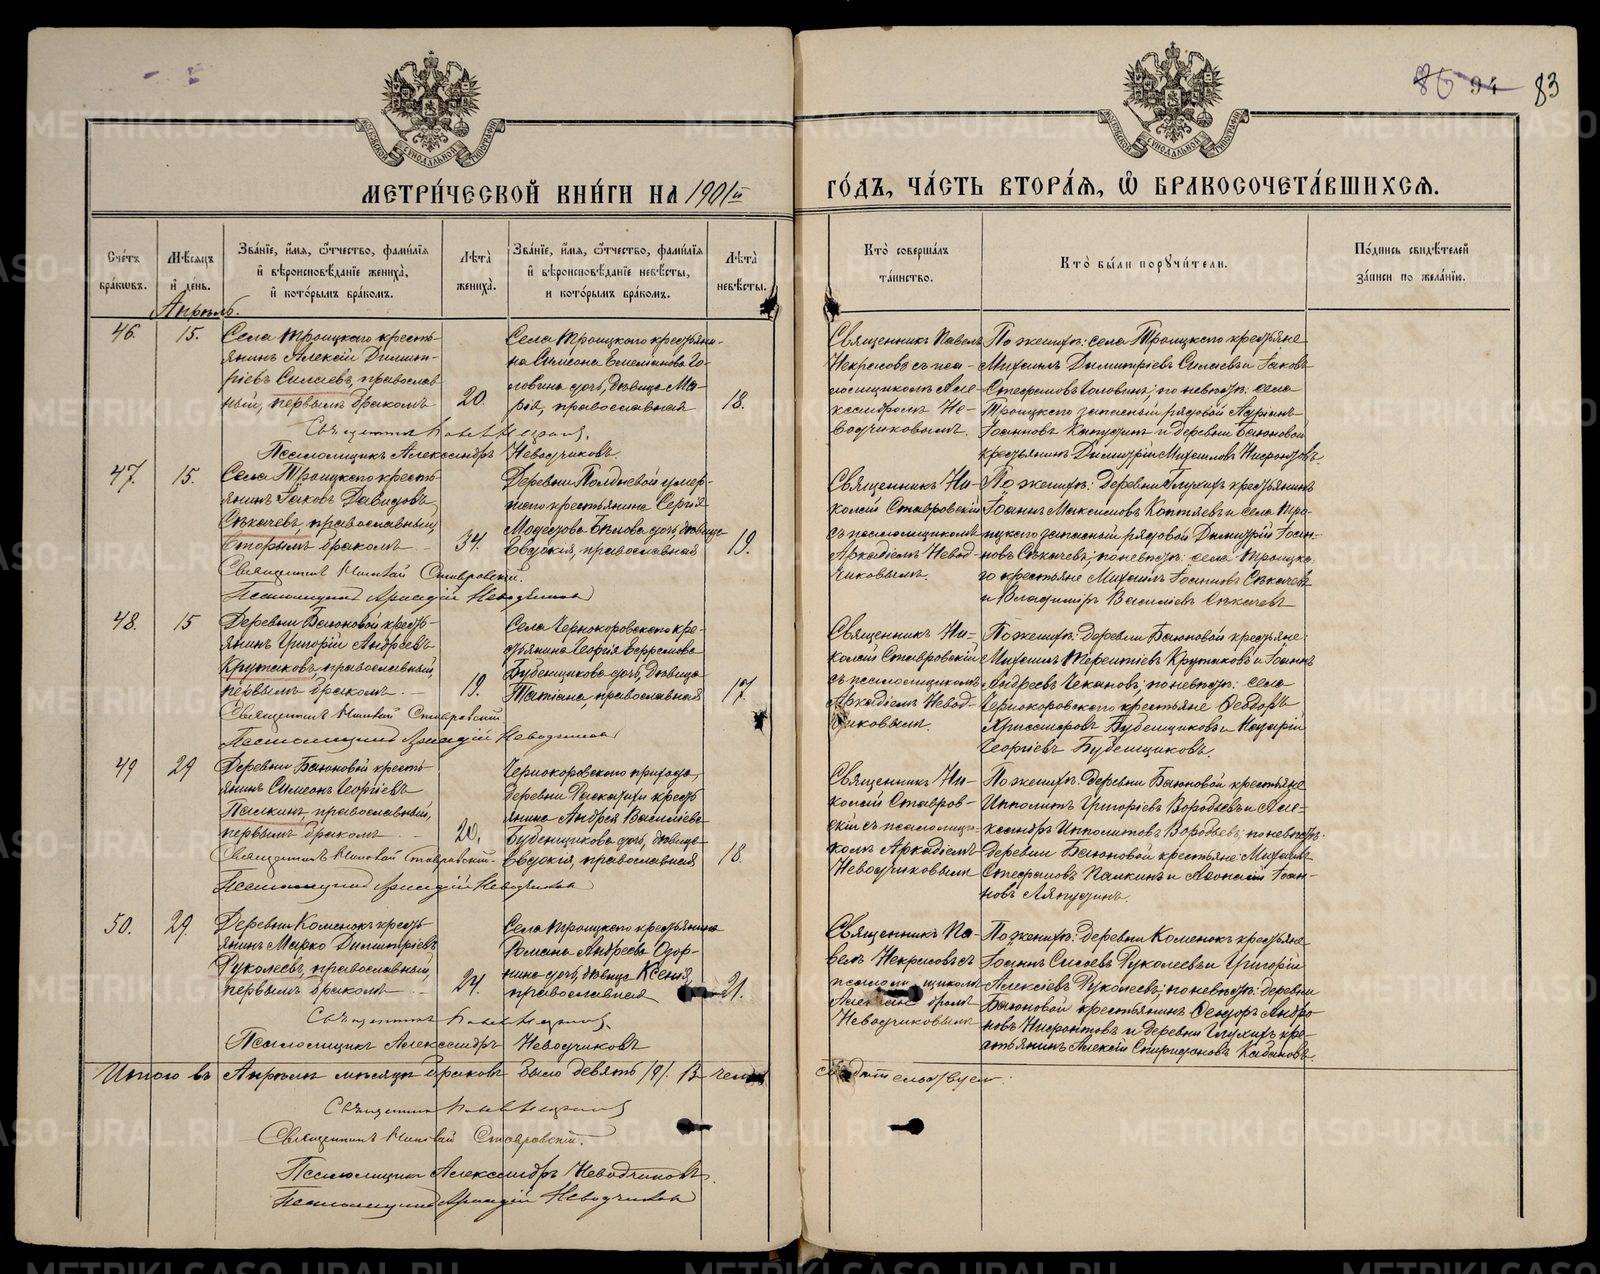 86 94 83
МЕТРИ́ЧЕСКОЙ КНИ́ГИ НА 1901й ГО́ДЪ, ЧА́СТЬ ВТОРА́Я, Ѡ БРАКОСОЧЕТА́ВШИХСЯ.
Сче́тъ бра́ковъ.
Мѣ́сяцъ и де́нь.
Зва́нїе, и́мя, ѻ́тчество, фами́лїя и́ вѣроисповѣ́данїе жениха̀, и́ кото́рымъ бра́комъ.
Лѣта̀ жениха̀.
Зва́нїе, и́мя, ѻ́тчество, фами́лїя и́ вѣроисповѣ́данїе невѣ́сты, и кото́рымъ бра́комъ.
Лѣта̀ невѣ́сты.
Кто̀ соверша́лъ та́инство.
Кто̀ бы́ли пору́чители.
По́дпись свидѣ́телей за́писи по жела́нїю.
Апрѣль.
46.
15.
Села Троицкаго кресть-
янинъ Алексій Димит-
ріевъ Силаевъ, православ
ный, первымъ бракомъ
20.
Села Троицкаго крестьяни-
на Симеона Емельянова Го-
ловина дочь, дѣвица Ма-
рія, православная
18.
Священникъ Павелъ
Некрасовъ съ пса-
ломщикомъ Але-
ксандромъ Не-
водчиковымъ.
По женихѣ: села Троицкаго крестьяне
Михаилъ Димитріевъ Силаевъ и Іаковъ
Стефановъ Головинъ; по невѣстѣ: села
Троицкаго запасный рядовой Адріанъ
Іоанновъ и деревни Баюновой
крестьянинъ Димитрій Михаиловъ Нифонтовъ.
Священникъ Павелъ Некрасовъ.
Псаломщикъ Александръ Неводчиковъ.
47.
15.
Села Троицкаго кресть-
янинъ Іаковъ Давидовъ
Сѣкачевъ, православный,
вторымъ бракомъ
34.
Деревни Полдневой умер-
шаго крестьянина Сергія
Модестова Бѣлова дочь дѣвица
Евдокія, православная
19.
Священникъ Ни-
колай Ставровскій
съ псаломщикомъ
Аркадіемъ Невод-
чиковымъ.
По женихѣ: деревни Глухихъ крестьянинъ
Іоаннъ Максимовъ Коптяевъ и села Тро-
ицкаго запасный рядовой Димитрій Іоан-
новъ Сѣкачевъ; по невѣстѣ: села Троицка-
го крестьяне Михаилъ Іоанновъ Сѣкачевъ
и Владиміръ Василіевъ Сѣкачевъ
Священникъ Николай Ставровскій.
Псаломщикъ Аркадій Неводчиковъ
48.
15
Деревни Баюновой кресть-
янинъ Григорій Андреевъ
Крутаковъ, православный,
первымъ бракомъ. -
19.
Села Чернокоровскаго кре-
стьянина Георгія Ефремова
Бубенщикова дочь, дѣвица
Татіана, православная
17.
Священникъ Ни-
колай Ставровскій
съ псаломщикомъ
Аркадіемъ Невод-
чиковымъ.
По женихѣ: деревни Баюновой крестьяне:
Михаилъ Терентіевъ Крутаковъ и Іоаннъ
Андреевъ Чекановъ; по невѣстѣ: села
Чернокоровскаго крестьяне Ѳеодоръ
Бубенщиковъ и Назарій
Георгіевъ Бубенщиковъ.
Священникъ Николай Ставровскій
Псаломщикъ Аркадій Неводчиковъ
49
29
Деревни Баюновой кресть-
янинъ Симеонъ Георгіевъ
Палкинъ, православный,
первымъ бракомъ. -
20.
Чернокоровскаго прихода,
деревни Раскатихи кресть
янина Андрея Василіева
Бубенщикова дочь, дѣвица
Евдокія, православная
18.
Священникъ Ни-
колай Ставров-
скій съ псаломщи-
комъ Аркадіемъ
Неводчиковымъ
По женихѣ: деревни Баюновой крестьяне
Ипполитъ Григоріевъ Воробьевъ и Але-
ксандръ Ипполитовъ Воробьевъ; по невѣстѣ:
деревни Баюновой крестьяне: Михаилъ
Стефановъ Палкинъ и Іоан-
новъ Ляпустинъ.
Священникъ Николай Ставровскій.
Псаломщикъ Аркадій Неводчиковъ
50.
29.
Деревни Каменокъ кресть
янинъ Марко Димитріевъ
Руколеевъ, православный,
первымъ бракомъ. -
24.
Села Троицкаго крестьянина
Романа Андреева
дочь, дѣвица Ксенія,
православная
21.
Священникъ Па-
велъ Некрасовъ съ
псаломщикомъ
Александромъ
Неводчиковымъ
По женихѣ: деревни Каменокъ крестьяне
Іоаннъ Сысоевъ Руколеевъ и Григорій
Алексіевъ Руколеевъ; по невѣстѣ: деревни
Баюновой крестьянинъ Ѳеодоръ Андро
новъ Нифонтовъ и деревни Глухихъ кре-
стьянинъ Алексій Спиридоновъ Кабановъ.
Священникъ Павелъ Некрасовъ.
Псаломщикъ Александръ Неводчиковъ
Итого въ Апрѣлѣ мѣсяцѣ браковъ было девять /9/. В чемъ свидѣтельствуемъ:
Священникъ Павелъ Некрасовъ
Священникъ Николай Ставровскій.
Псаломщикъ Александръ Неводчиковъ.
Псаломщикъ Аркадій Неводчиковъ
METRIKI.GASO-URAL.RU